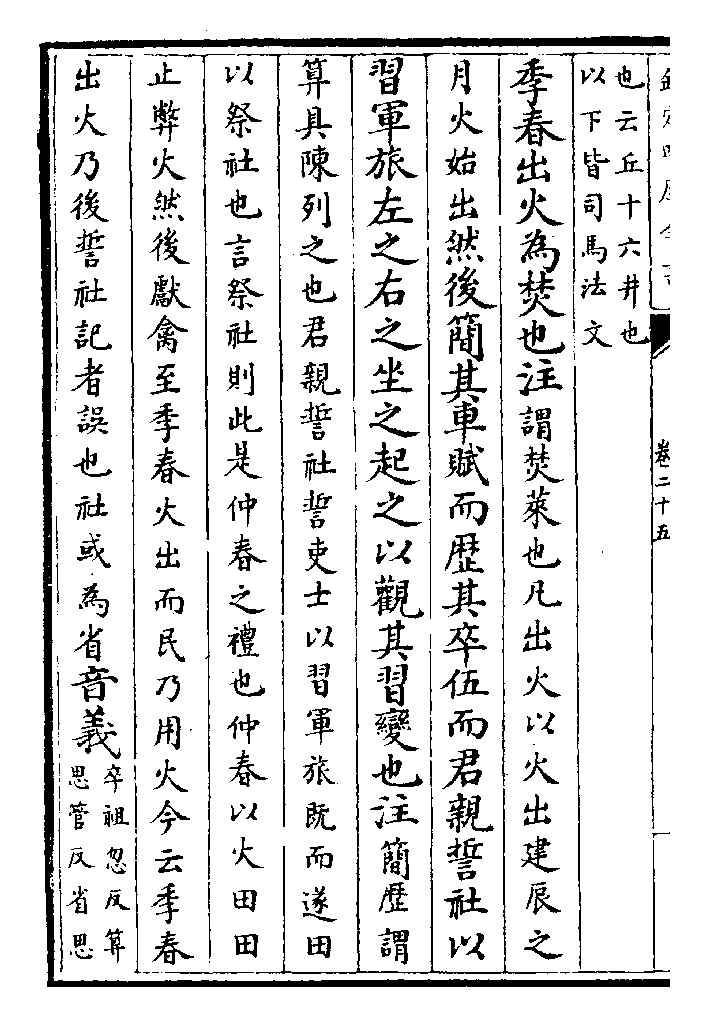 欽定四庫全書
卷二十五
也云丘十六井也
以下皆司馬法文
季春出火為焚也注謂焚萊也凡出火以火出建辰之
月火始出然後簡其車賦而歴其卒伍而君親誓社以
習軍旅左之右之坐之起之以觀其習變也注簡歴謂
算具陳列之也君親誓社誓吏士以習軍旅既而遂田
以祭社也言祭社則此是仲春之禮也仲春以火田田
止弊火然後獻禽至季春火出而民乃用火今云季春
出火乃後誓社記者誤也社或為省音義
卒祖忽反算
思管反省思